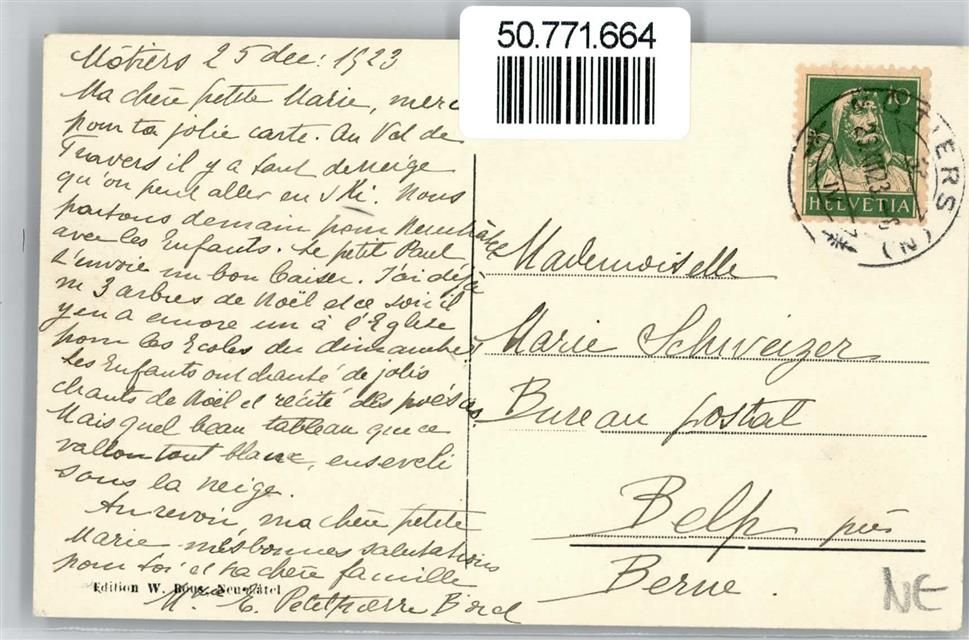 50.771.664
Môtiers 25 dec: 1923
Ma chère petite Marie, merci
pour ta jolie carte. Au Val de
Travers il y a tant de neige
qu'on peut aller en ski. Nous
partons demain pour Neuchâtel
avec les Enfants. Le petit Paul
t'envoie un bon baiser. J'ai déjà
3 arbres de Noël et ce soir il
y en a encore un à l'Eglise
pour les Ecoles du dimanche
Les Enfants ont chanté de jolis
chants de Noël et récité des poésies.
Mais quel beau tableau que ce
vallon tout blanc, enseveli
sous la neige.
Au revoir, ma chère petite
Marie mes bonnes salutations
pour toi et ta chère famille
M. E. Petitpierre Borel
Edition W. Neuchâtel
10
HELVETIA
MOTIERS (N)
Mademoiselle
Marie Schweizer
Bureau postal
Belp près
Berne.
NE